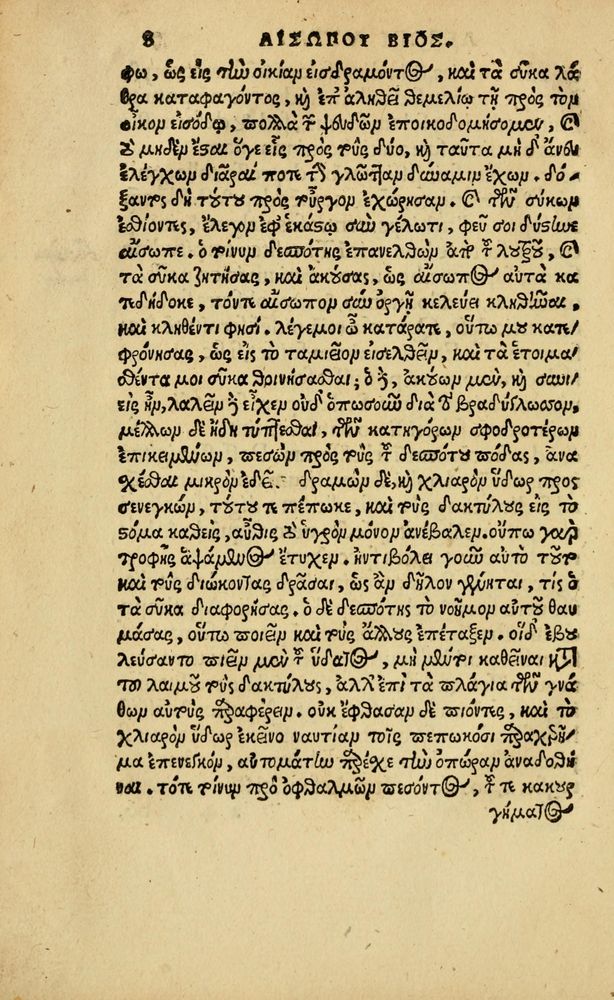 8 ΑΙΣΩΠΟΥ ΒΙΟΣ.
φω, ὡς εἰς τὴν οἰκίαν εἰσδραμόντος, καὶ τὰ σῦκα λά
θρα καταφαγόντος, κỳ ἐπ' ἀληθεῖ θεμελίῳ τῇ πρὸς τὸν
οἶκον εἰσόδῳ, πολλὰ τ ψευδῶν ἐποικοδομήσομεν, καὶ
οὐ μηδὲν ἔσαι ὅγε εἷς πρὸς τοὺς δύο, καὶ ταῦτα μηδ' ἄνευ
ἐλέγχων διᾶραί ποτε τὴν γλῶτταν δύναμιν ἔχων. δό-
ξαν δὴ τούτου πρὸς τοὖργον ἐχώρησαν. καὶ τῶν σύκων
ἐσθίοντες, ἔλεγον ἐφ' ἑκάστῳ σὺν γέλωτι, φεῦ σοι δύστηνε
αἴσωπε. ὁ τοίνυν δεσπότης ἐπανελθὼν ἀπὸ τοῦ λουτροῦ, καὶ
τὰ σῦκα ζητήσας, καὶ ἀκούσας, ὡς αἴσωπος αὐτὰ κα
τεδήδοκε, τόντε αἴσωπον σὺν ὀργῇ κελεύει κληθῆναι,
καὶ κληθέντι φησί. λέγε μοι ὦ κατάρατε, οὕτω μου κατε-
φρόνησας, ὡς εἰς τὸ ταμιεῖον εἰσελθεῖν, καὶ τὰ ἑτοιμα-
σθέντα μοι σῦκα θοινήσασθαι; ὁ δὲ, ἀκούων μὲν, καὶ συνι-
εὶς ἦν, λαλεῖν δὲ εἶχεν οὐδ' ὁπωσοῦν διὰ τὸ βραδύγλωσσον,
μέλλων δὲ ἤδη τύπτεσθαι, τῶν κατηγόρων σφοδροτέρων
ἐπικειμένων, πεσὼν πρὸς τοὺς τοῦ δεσπότου πόδας, ἀνα
σχέσθαι μικρὸν ἐδεῖ. δραμὼν δὲ, καὶ χλιαρὸν ὕδωρ προσ
ενεγκὼν, τοῦτό τε πέπωκε, καὶ τοὺς δακτύλους εἰς τὸ
στόμα καθεὶς, αὖθις τὸ ὑγρὸν μόνον ἀνέβαλεν. οὔπω γὰρ
τροφῆς ἁψάμενος ἔτυχεν. ἠντιβόλει γοῦν αὐτὸ τοῦτο
καὶ τοὺς διώκοντας δρᾶσαι, ὡς ἂν δῆλον γένηται, τίς ὁ
τὰ σῦκα διαφορήσας. ὁ δὲ δεσπότης τὸ νοῦνον αὐτοῦ θαυ
μάσας, οὕτω ποιεῖν καὶ τοὺς ἄλλους ἐπέταξεν. οἱ δ' ἐβου
λεύσαντο πιεῖν μὲν τοῦ ὕδατος, μὴ μέντοι καθεῖναι κατὰ
τοῦ λαιμοῦ τοὺς δακτύλους, ἀλλ' ἐπὶ τὰ πλάγια τῶν γνά
θων αὐτοὺς παραφέρειν. οὐκ ἔφθασαν δὲ πιόντες, καὶ τὸ
χλιαρὸν ὕδωρ ἐκεῖνο ναυτίαν τοῖς πεπωκόσι παραχρῆ-
μα ἐπενεγκὸν, αὐτομάτην παρέσχε τὴν ὀπώραν ἀναδοθῆ
ναι. τότε τοίνυν πρὸ ὀφθαλμῶν πεσόντος, τοῦ τε κακουρ
γήματος